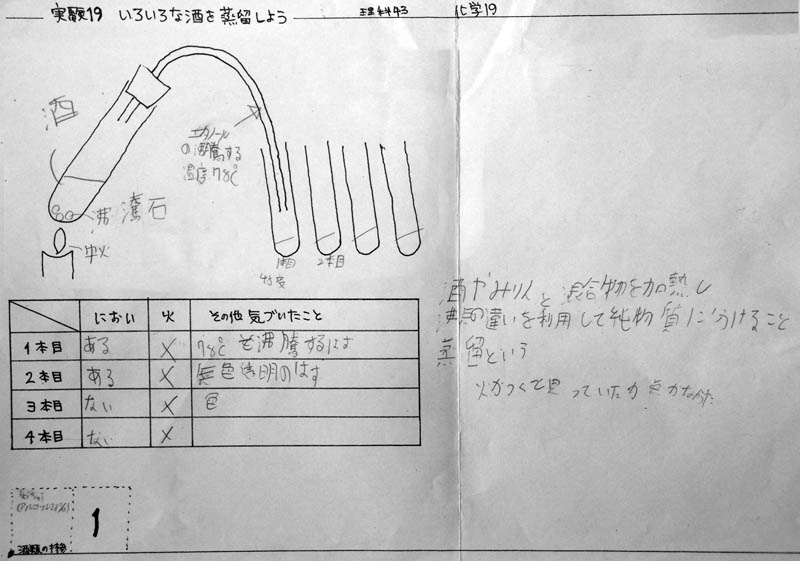 実験19 いろいろな酒を蒸留しよう 理科43 化学19
酒
エタノール
の沸騰する
温度78℃
沸騰石
中火
1本目 2本目
におい 火 その他 気づいたこと
1本目 ある × 78℃で沸騰するには
2本目 ある × 無色透明のはず
3本目 ない × 色
4本目 ない ×
酒やみりんと混合物を加熱し
沸点の違いを利用して純物質に分けること
蒸留という
火がつくと思っていたが点かなかった
1
酒類の種類